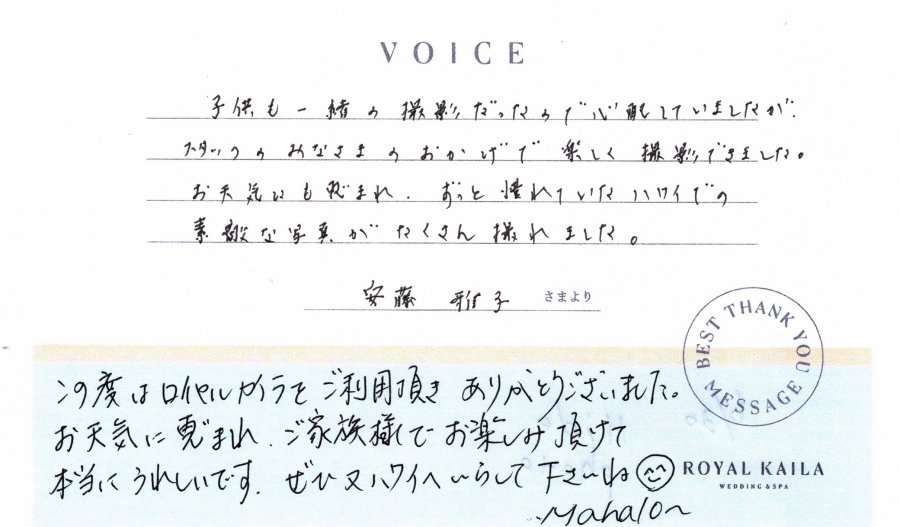 VOICE
子供も一緒の撮影だったので心配していましたが、
スタッフのみなさまのおかげで楽しく撮影できました。
お天気にも恵まれ、ずっと憧れていたハワイでの
素敵な写真がたくさん撮れました。
安藤 雅子 さまより
BEST THANK YOU MESSAGE
この度はロイヤルカイラをご利用頂きありがとうございました。
お天気に恵まれ、ご家族様でお楽しみ頂けて
本当にうれしいです。ぜひ又ハワイへいらして下さいね
Mahalo~
ROYAL KAILA
WEDDING & SPA